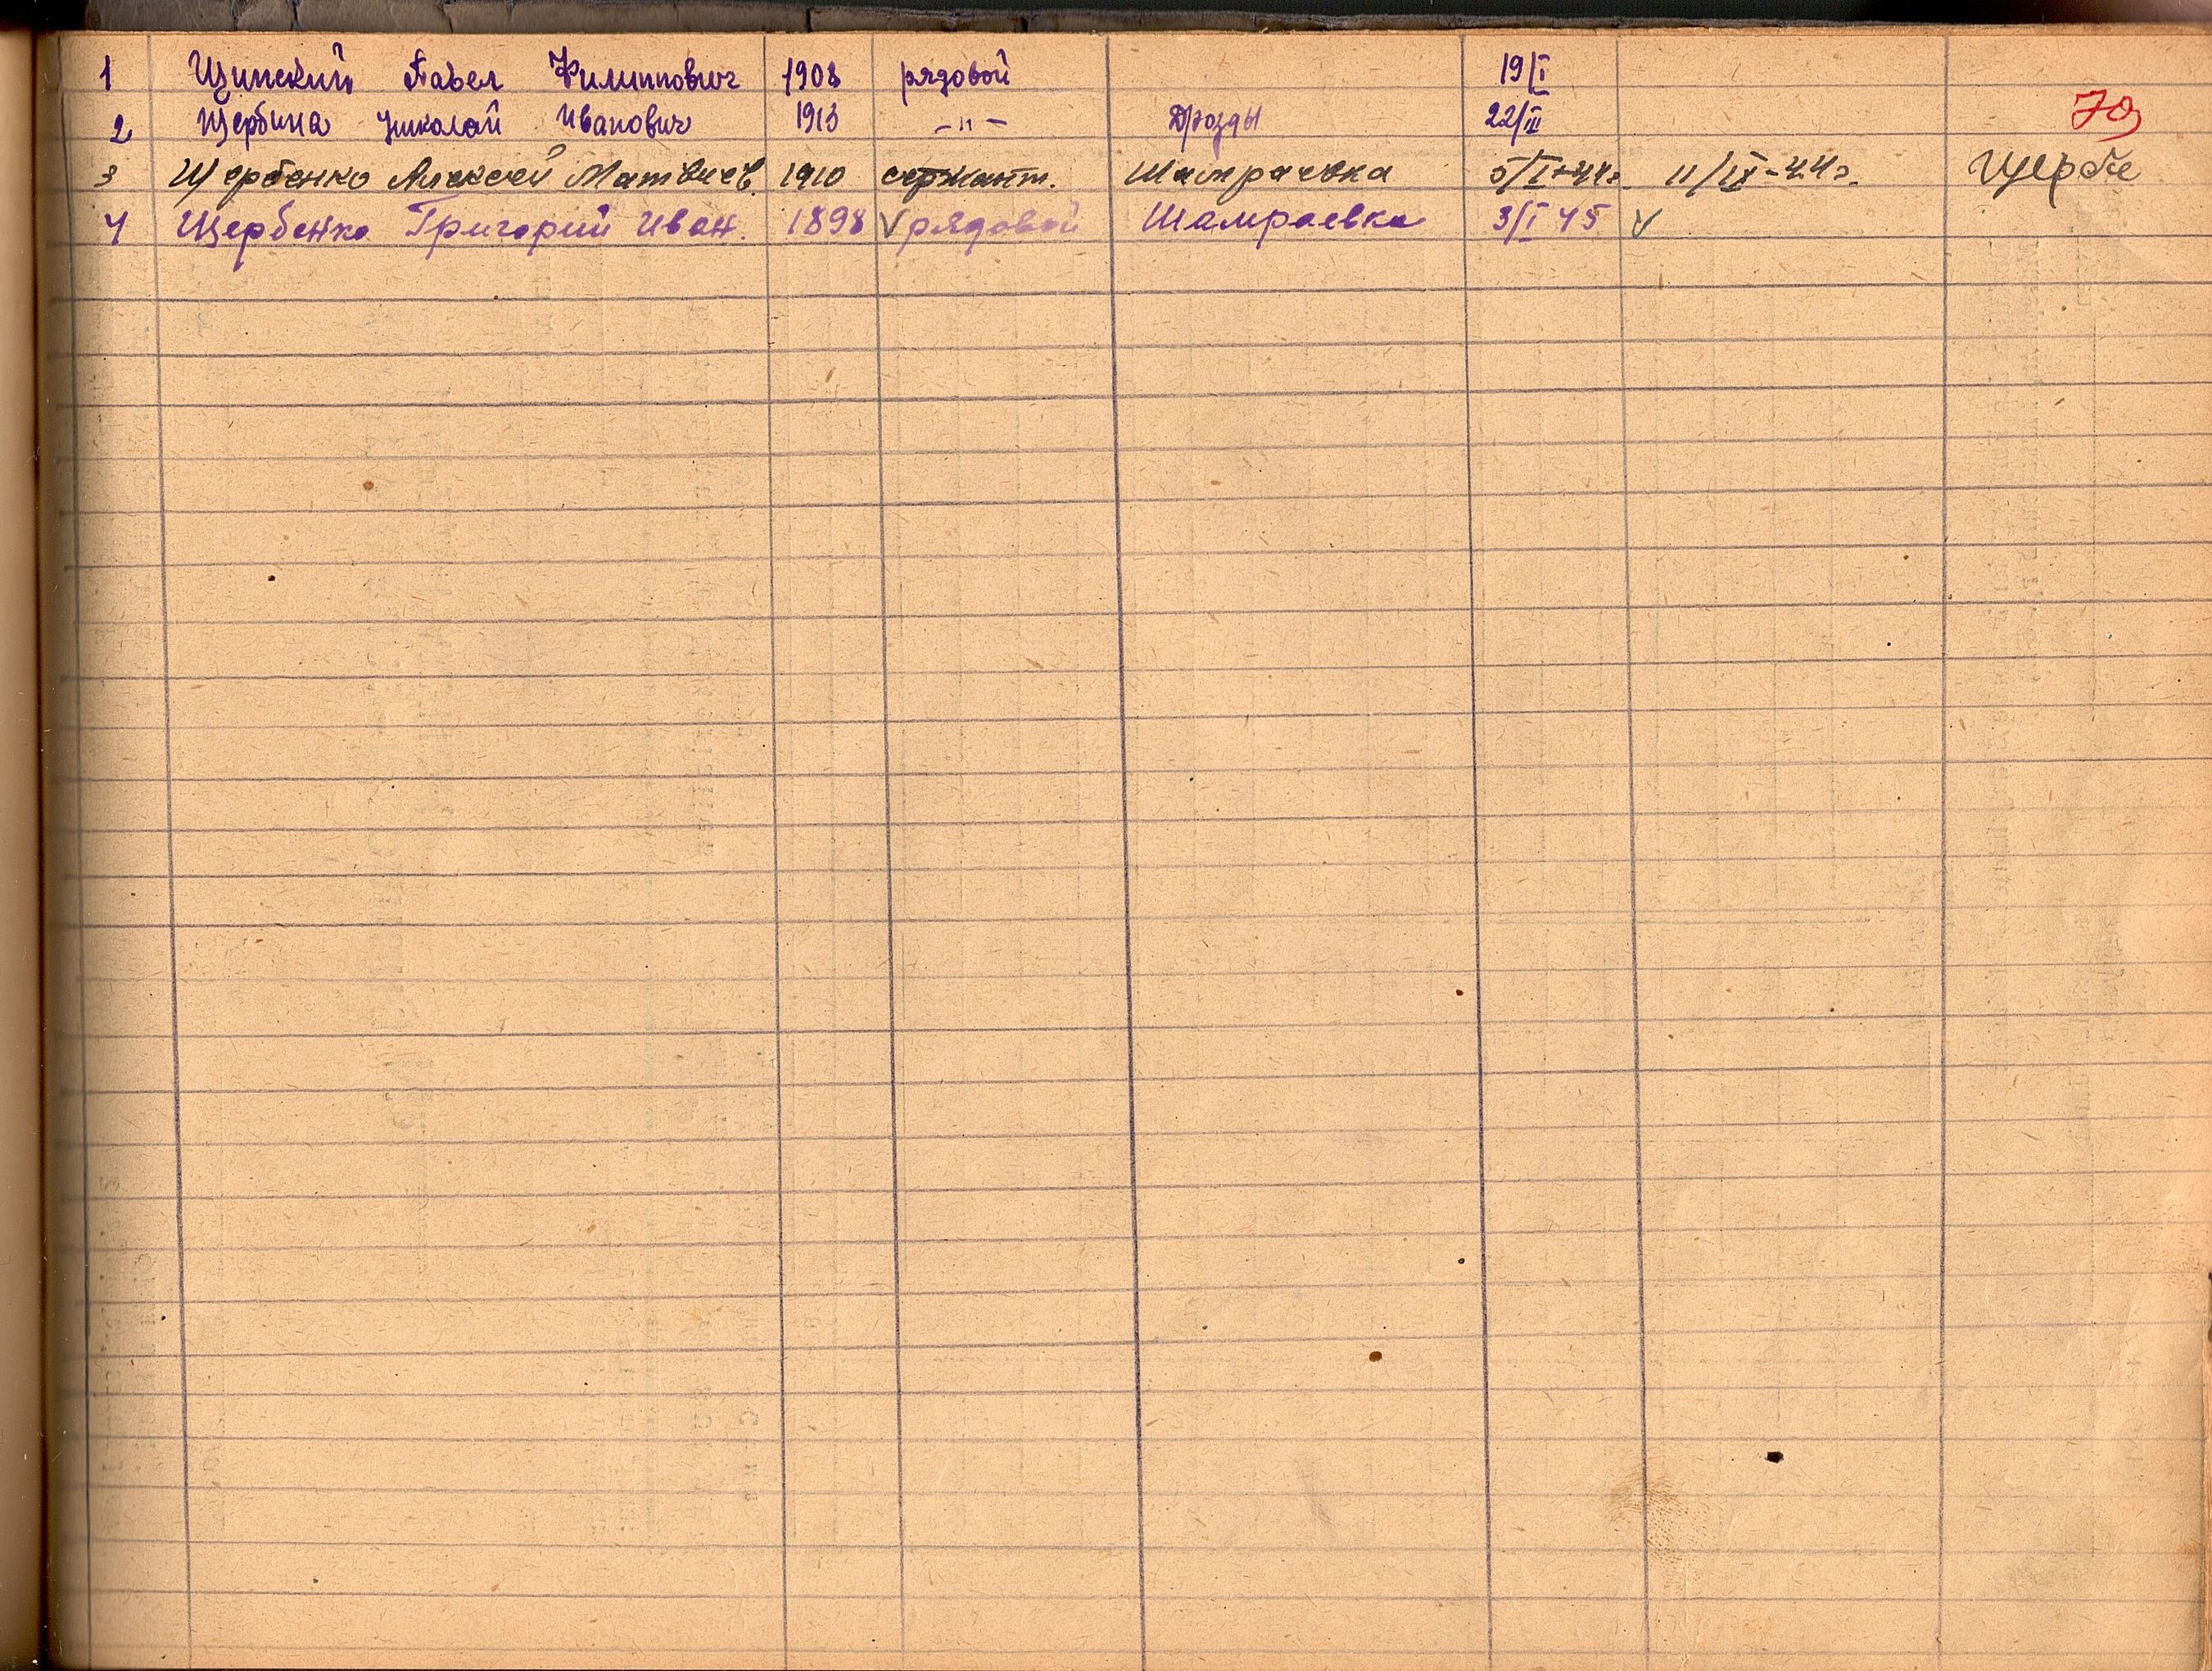 1 Щипский Павел Филиппович 1908 рядовой 19/I
70
2 Щербина Николай Иванович 1913 –"– Дрозды 22/III
3 Щербенко Алексей Матвеев. 1910 сержант. Шамраевка 5/I-44г. 11/IX-44г. Щербе
4 Щербенко Григорий Иван. 1898 V рядовой Шамраевка 3/I 45 V